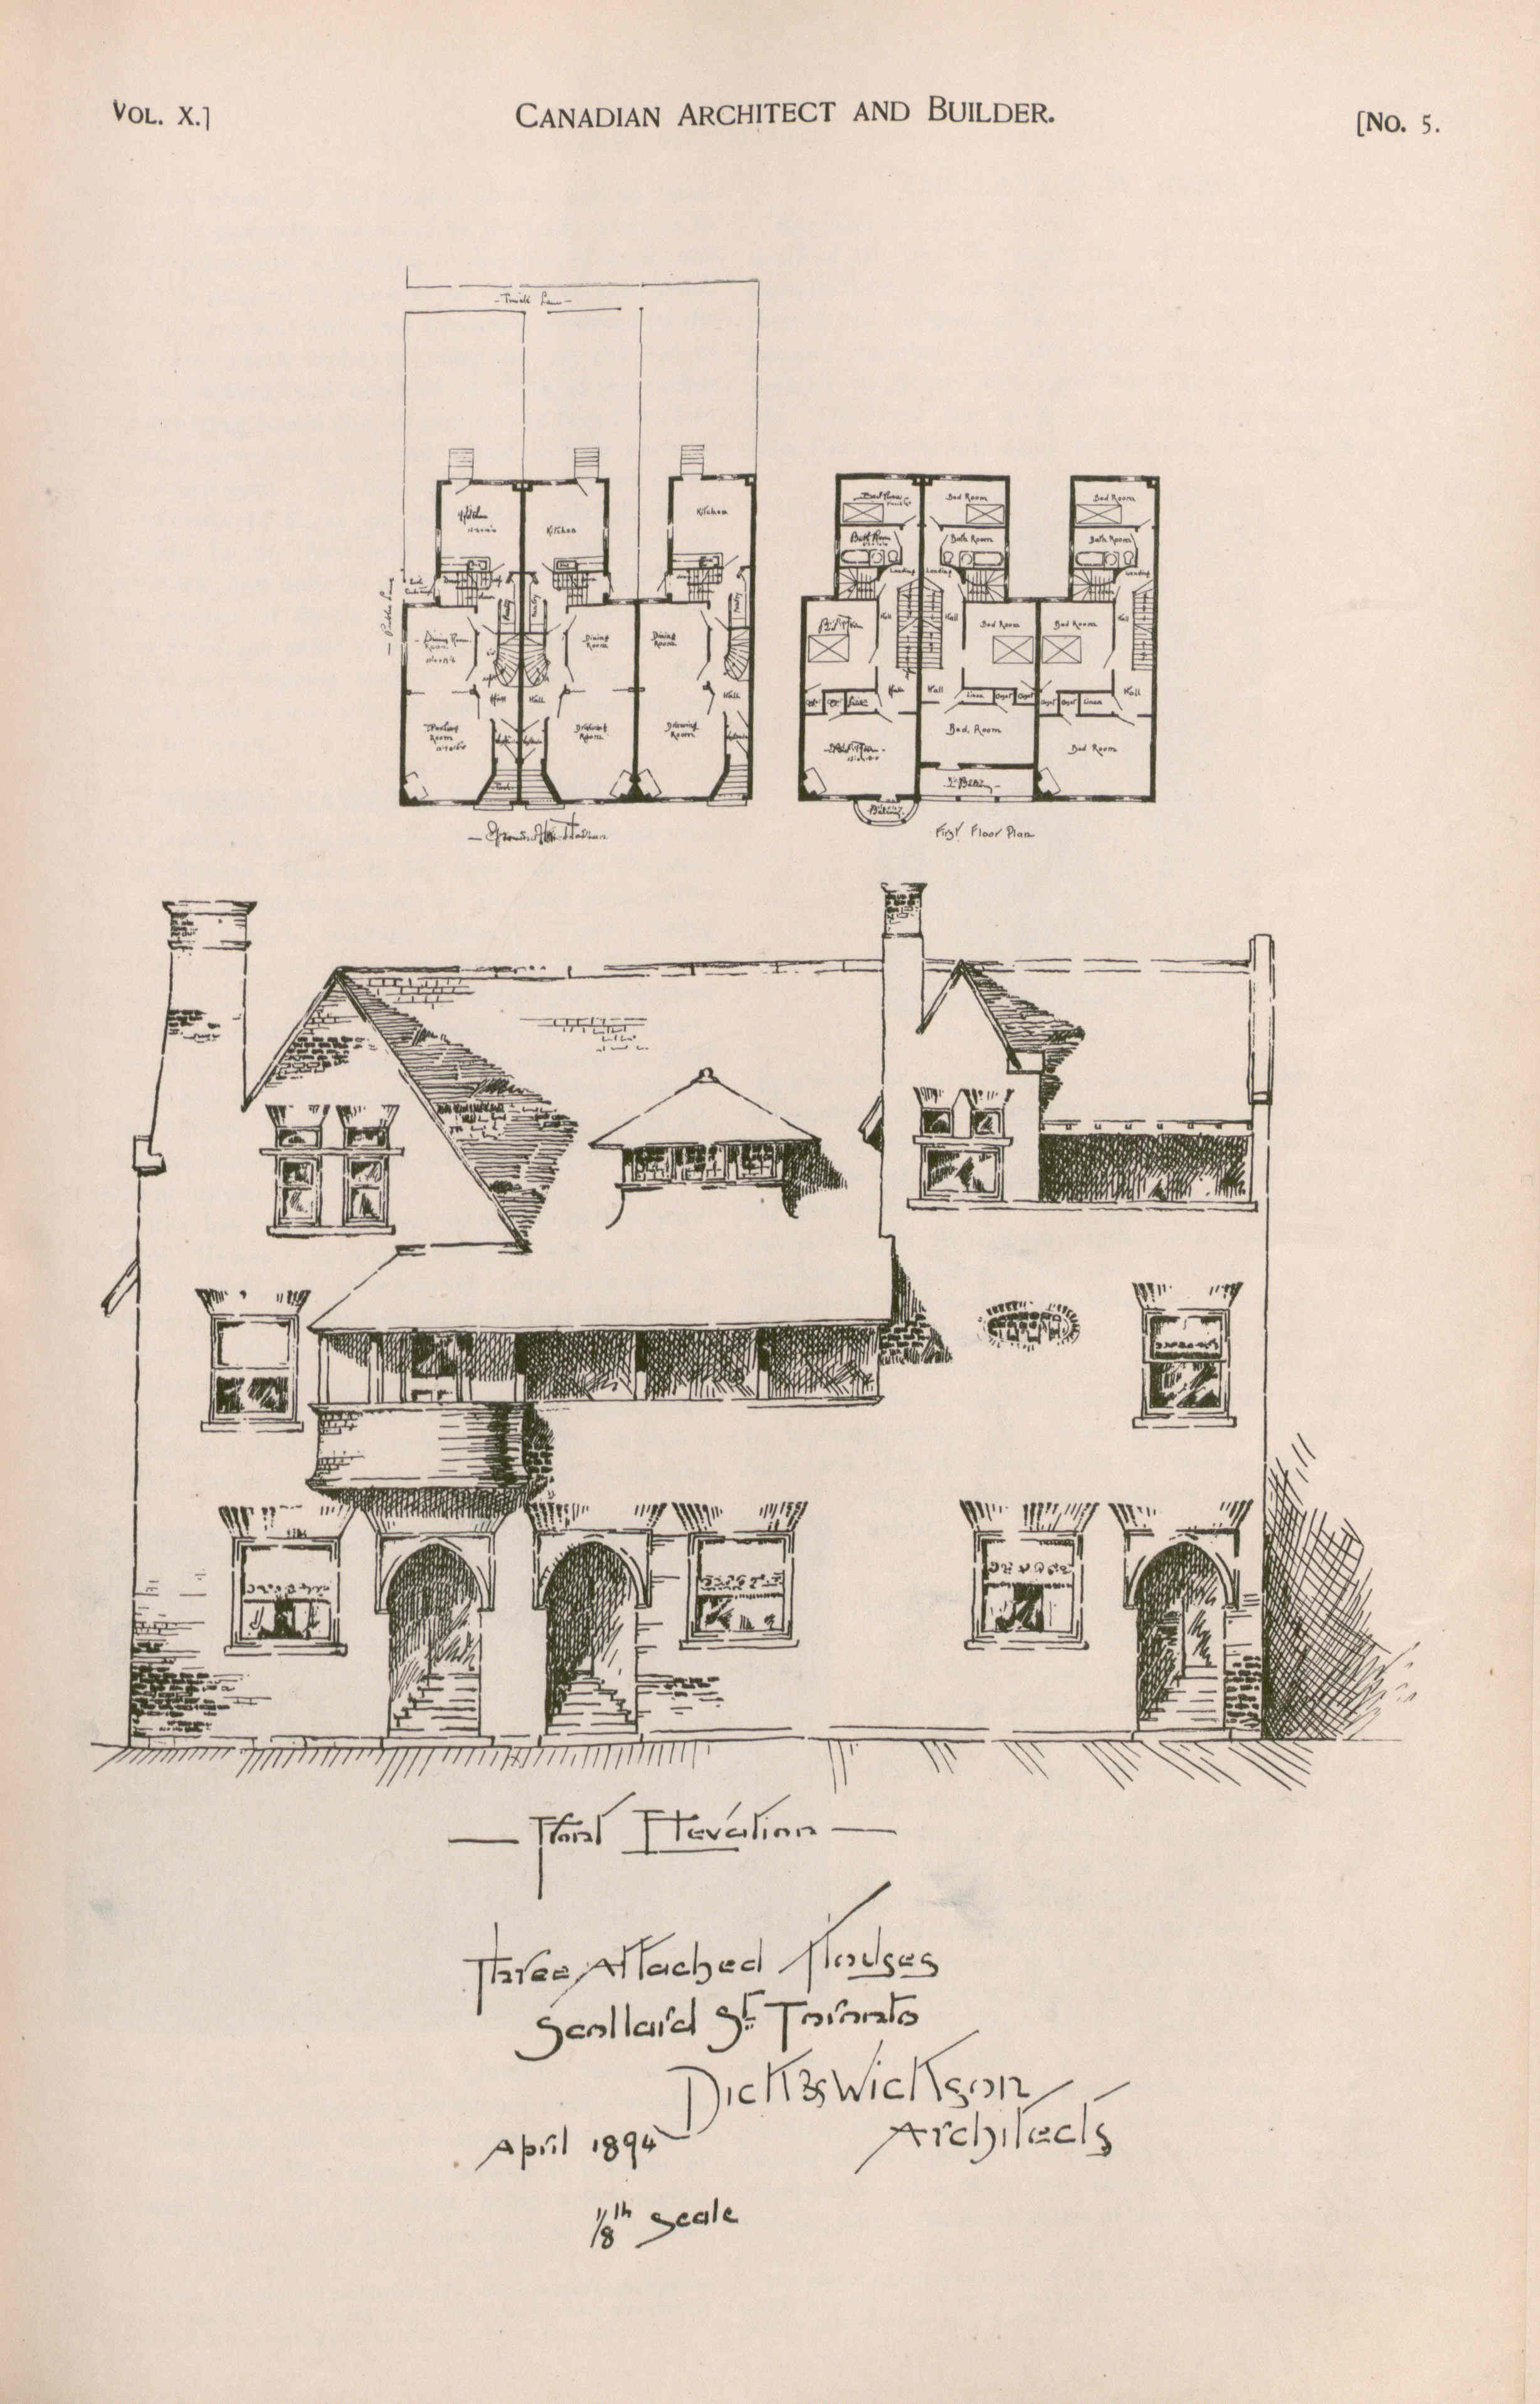 VOL. X.]
CANADIAN ARCHITECT AND BUILDER.
[NO. 5.
Kitchen
Kitchen
Dining Room
Dining
Room
Dining
Room
Hall
Hall
Hall
Room
Drawing
Room
Drawing
Room
Bed Room
Bed Room
Bed Room
Bath Room
Bath Room
Bath Room
Landing
Landing
Landing
Hall
Hall
Hall
Bed Room
Bed Room
Hall
Hall
Hall
Linen
Closet
Closet
Closet
Closet
Linen
Bed. Room
Bed Room
Balcony.
First Floor Plan
— Front Elevation —
Three Attached Houses
Scollard St. Toronto
Dick & Wickson
Architects
April 1894
1/8th scale